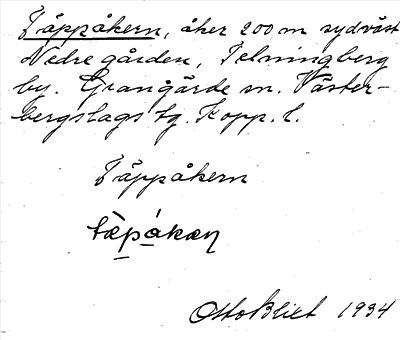 Täppåkern, åker 200 m sydväst
Nedre gården, Pelningberg
by. Grangärde sn. Väster-
bergslags tg. Kopp. l.
Täppåkern
Otto Bliet 1934